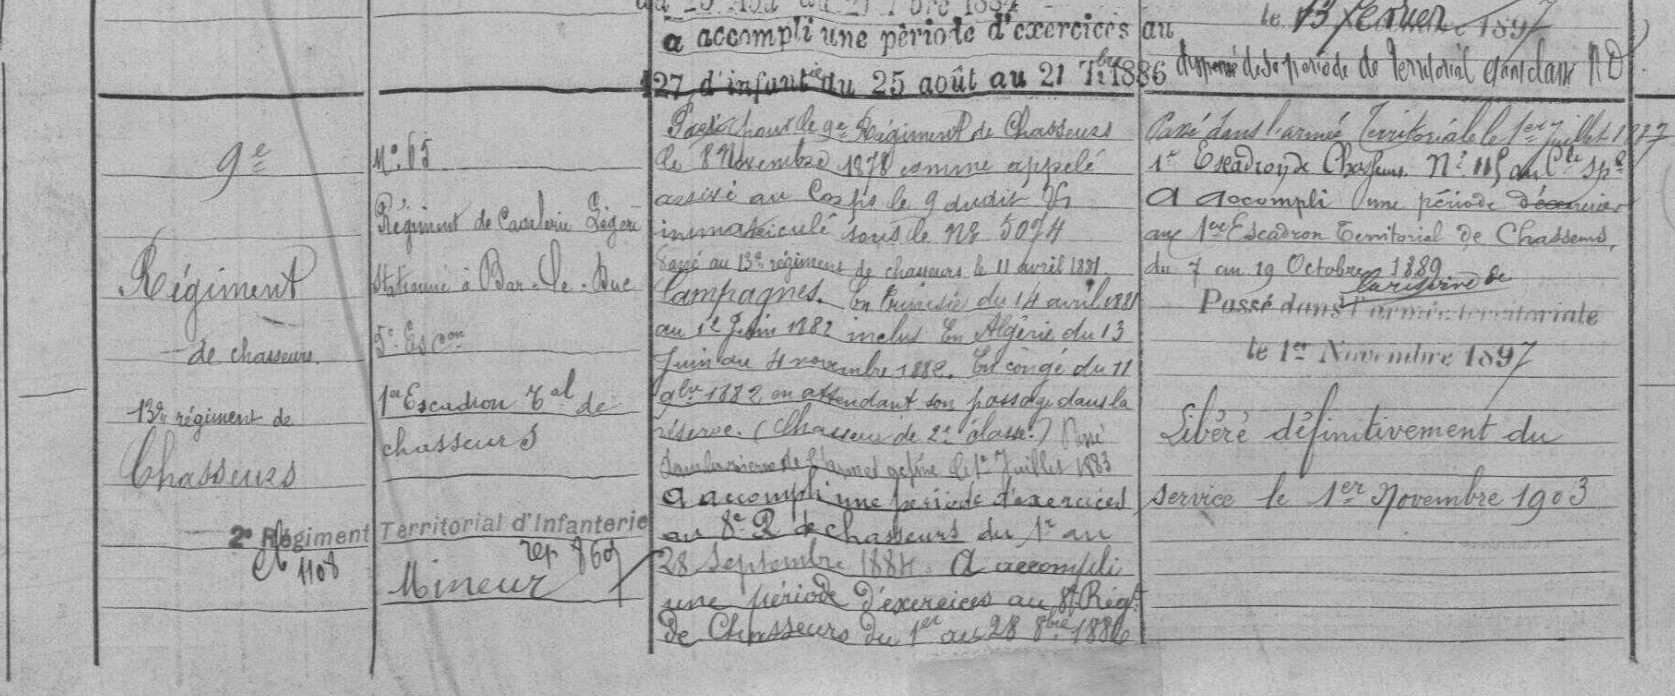 a accompli une période d'exercices au
127 d'infant<sup>ie</sup> du 25 août au 21 7bre 1886
le 13 février 1897
de la période de territorial
9e
Régiment
de chasseurs.
13e régiment de
Chasseurs
2e Régiment
1108
No 65
Régiment de Cavalerie Légère
stationné à Bar-le-Duc
5e Escon
1er Escadron Tal de
chasseurs
Territorial d'Infanterie
rep
Mineur
Parti pour le 9e Régiment de Chasseurs
le 8 Novembre 1878 comme appelé
arrivé au Corps le 9 dudit
immatriculé sous le No 5074
Passé au 13e régiment de chasseurs le 11 avril 1881.
Campagnes. En Tunisie du 14 avril 1881
au 12 Juin 1882 inclus En Algérie du 13
Juin au 4 novembre 1882. En congé du 11
9bre 1882 en attendant son passage dans la
réserve. (Chasseur de 2e classe.) Passé
dans la réserve de l'armée active le 1er Juillet 1883
a accompli une période d'exercices
au 8e R de chasseurs du 1er au
28 Septembre 1884. A accompli
une période d'exercices au 8e Régt
de Chasseurs du 1er au 28 8bre 1886
Passé dans l'armée Territoriale le 1er Juillet 1887
1er Escadron de Chasseurs No
A accompli une période d'exercices
au 1er Escadron Territorial de Chasseurs,
du 7 au 19 Octobre 1889
la réserve de
Passé dans l'armée territoriale
le 1er Novembre 1897
Libéré définitivement du
service le 1er Novembre 1903